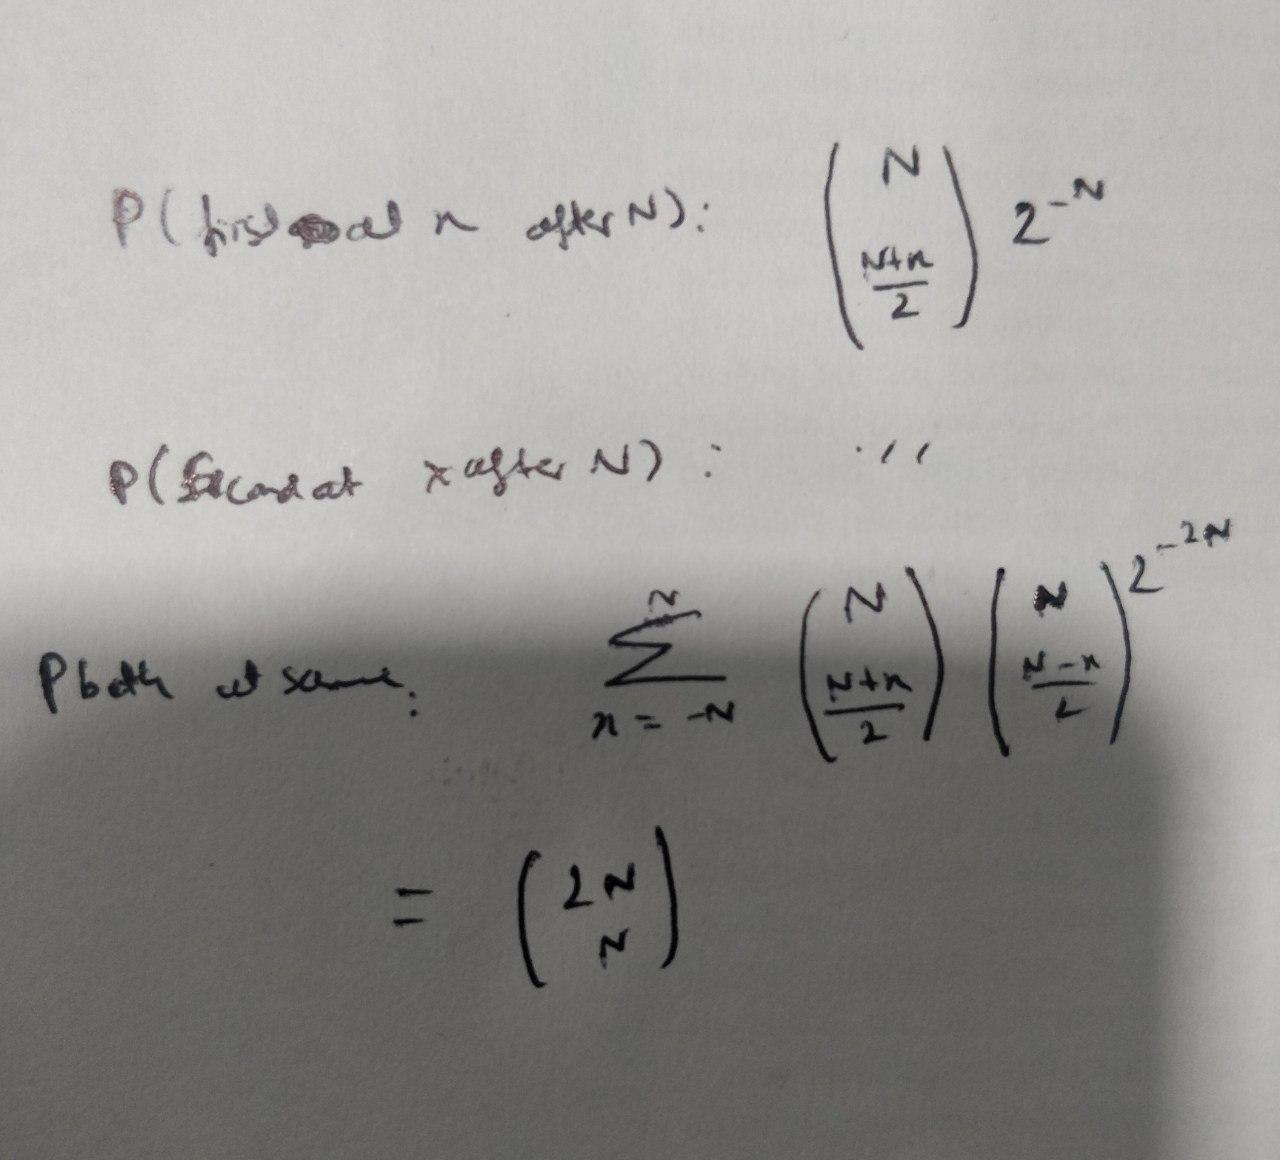 P(first at x after N): (N (N+x)/2) 2^-N
P(Second at x after N): ''
P both at same: Σ_{x = -N}^{N} (N (N+x)/2) (N (N-x)/2) 2^-2N
= (2N N)